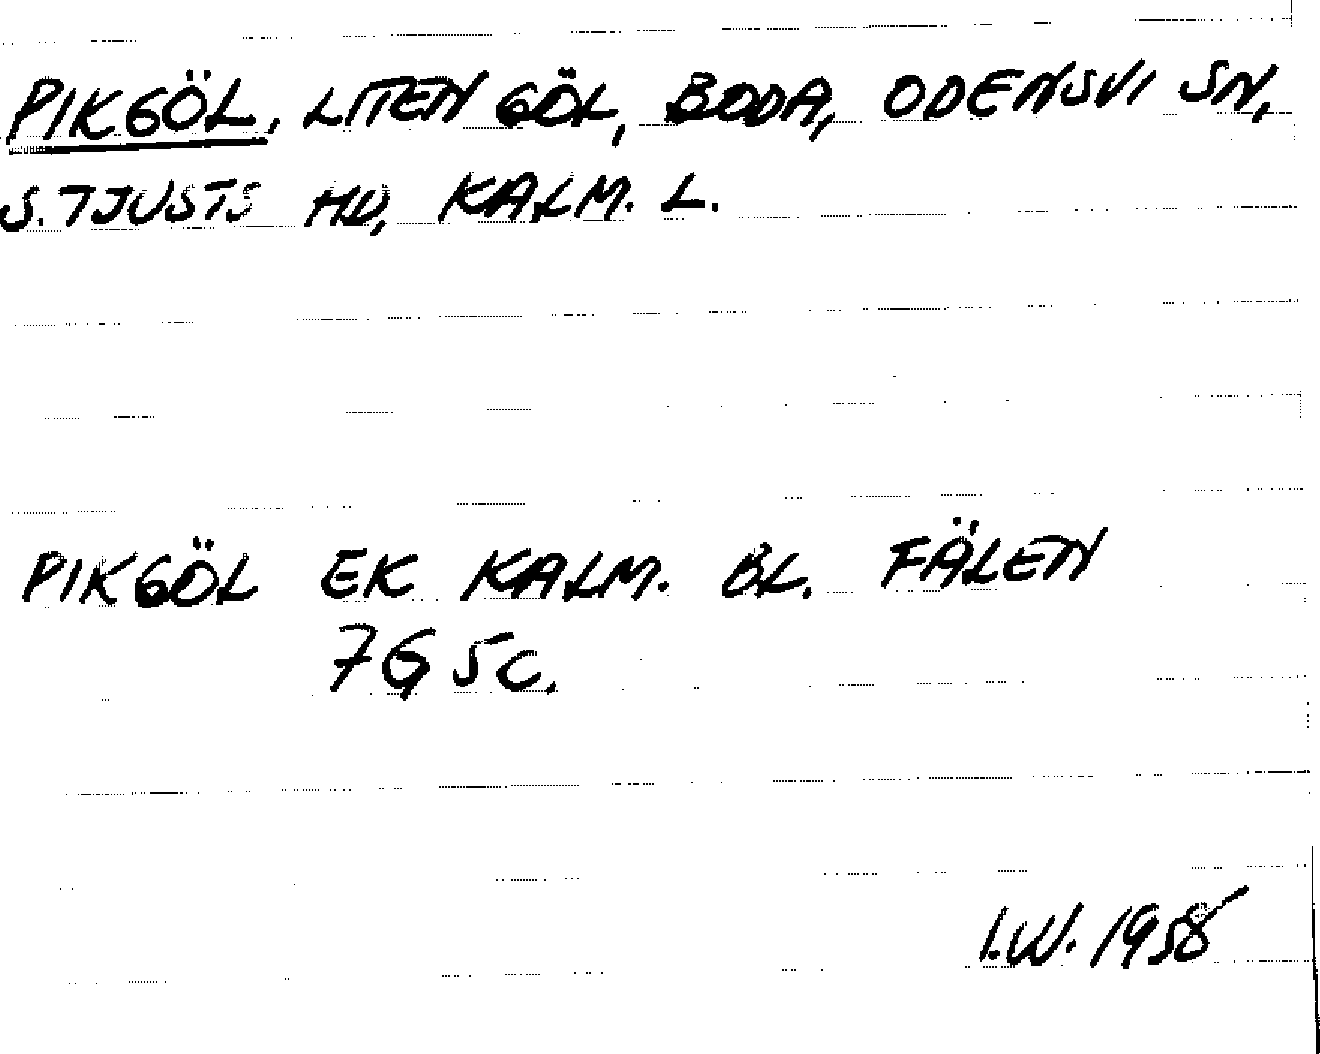 PIKGÖL, LITEN GÖL, BODA, ODENSVI SN,
S. TJUSTS HD, KALM. L.
PIKGÖL EK KALM. BL. FÄLEN
7G 5c.
I.W. 1958